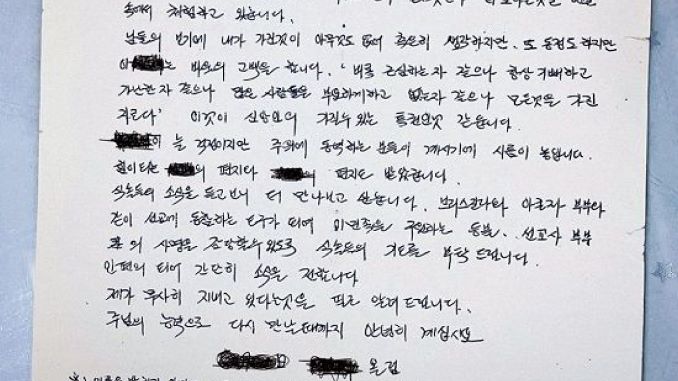 속에서 체험하고 있습니다.
남들의 보기에 내가 가진것이 아무것도 없어 측은히 생각하지만, 또 동정도 하지만
는 바울의 고백을 합니다. '때로 근심하는 자 같으나 항상 기뻐하고
가난한 자 같으나 많은 사람들을 부요하게하고 없는자 같으나 모든것을 가진
자로다' 이것이 신앙인의 가질수 있는 특권인것 같습니다.
이 늘 걱정이지만 주위에 동역하는 분들이 계시기에 시름이 놓입니다.
힘이되는 의 편지다 편지도 받았습니다.
식솔들의 소식을 듣고보니 더 만나보고 싶습니다. 브리스길라와 아굴라 부부와
같이 선교에 동참하는 도구가 되여 이민족을 구원하는 동붕, 선교사 부부
의 사명을 감당할수 있도록 식솔들의 기도를 부탁 드립니다.
인편이 되어 간단히 소식을 전합니다
제가 무사히 지내고 있다는것을 필로 알려드립니다.
주님의 능력으로 다시 만날때까지 안녕히 계십시요
올림